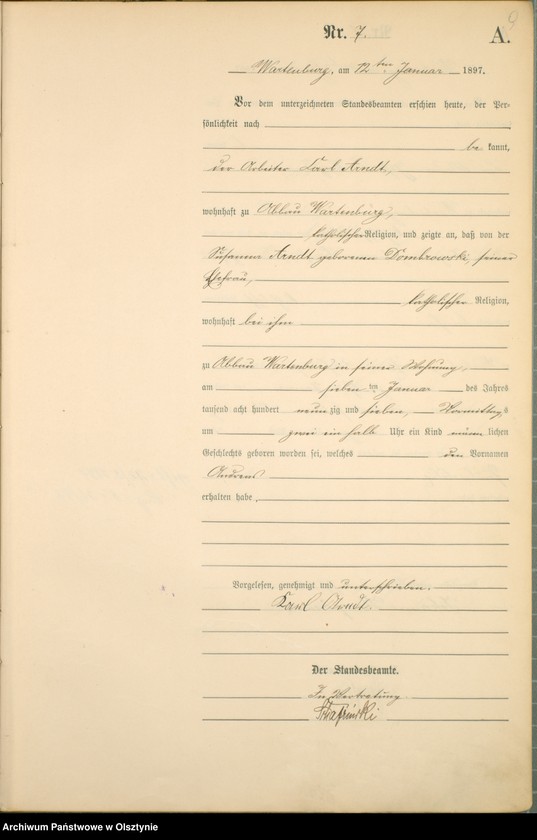 9
Nr. 7.
A.
Wartenburg, am 12ten Januar 1897.
Vor dem unterzeichneten Standesbeamten erschien heute, der Per-
sönlichkeit nach
be kannt,
der Arbeiter Karl Arndt,
wohnhaft zu Abbau Wartenburg,
katholischer Religion, und zeigte an, daß von der
Susanna Arndt geborenen Dombrowski, seiner
Ehefrau,
katholischer Religion,
wohnhaft bei ihm
zu Abbau Wartenburg in seiner Wohnung,
am sieben ten Januar des Jahres
tausend acht hundert neun zig und sieben, Vormittags
um zwei ein halb Uhr ein Kind männ lichen
Geschlechts geboren worden sei, welches den Vornamen
Andreas
erhalten habe.
Vorgelesen, genehmigt und unterschrieben.
Karl Arndt.
Der Standesbeamte.
In Vertretung
Archiwum Państwowe w Olsztynie